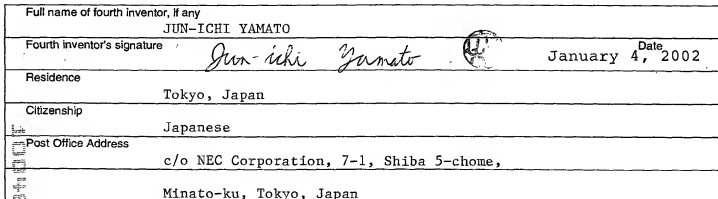 Full name of fourth inventor, if any
JUN-ICHI YAMATO
Fourth inventor's signature Jun-ichi Yamato Date January 4, 2002
Residence
Tokyo, Japan
Citizenship
Japanese
Post Office Address
c/o NEC Corporation, 7-1, Shiba 5-chome,
Minato-ku, Tokyo, Japan